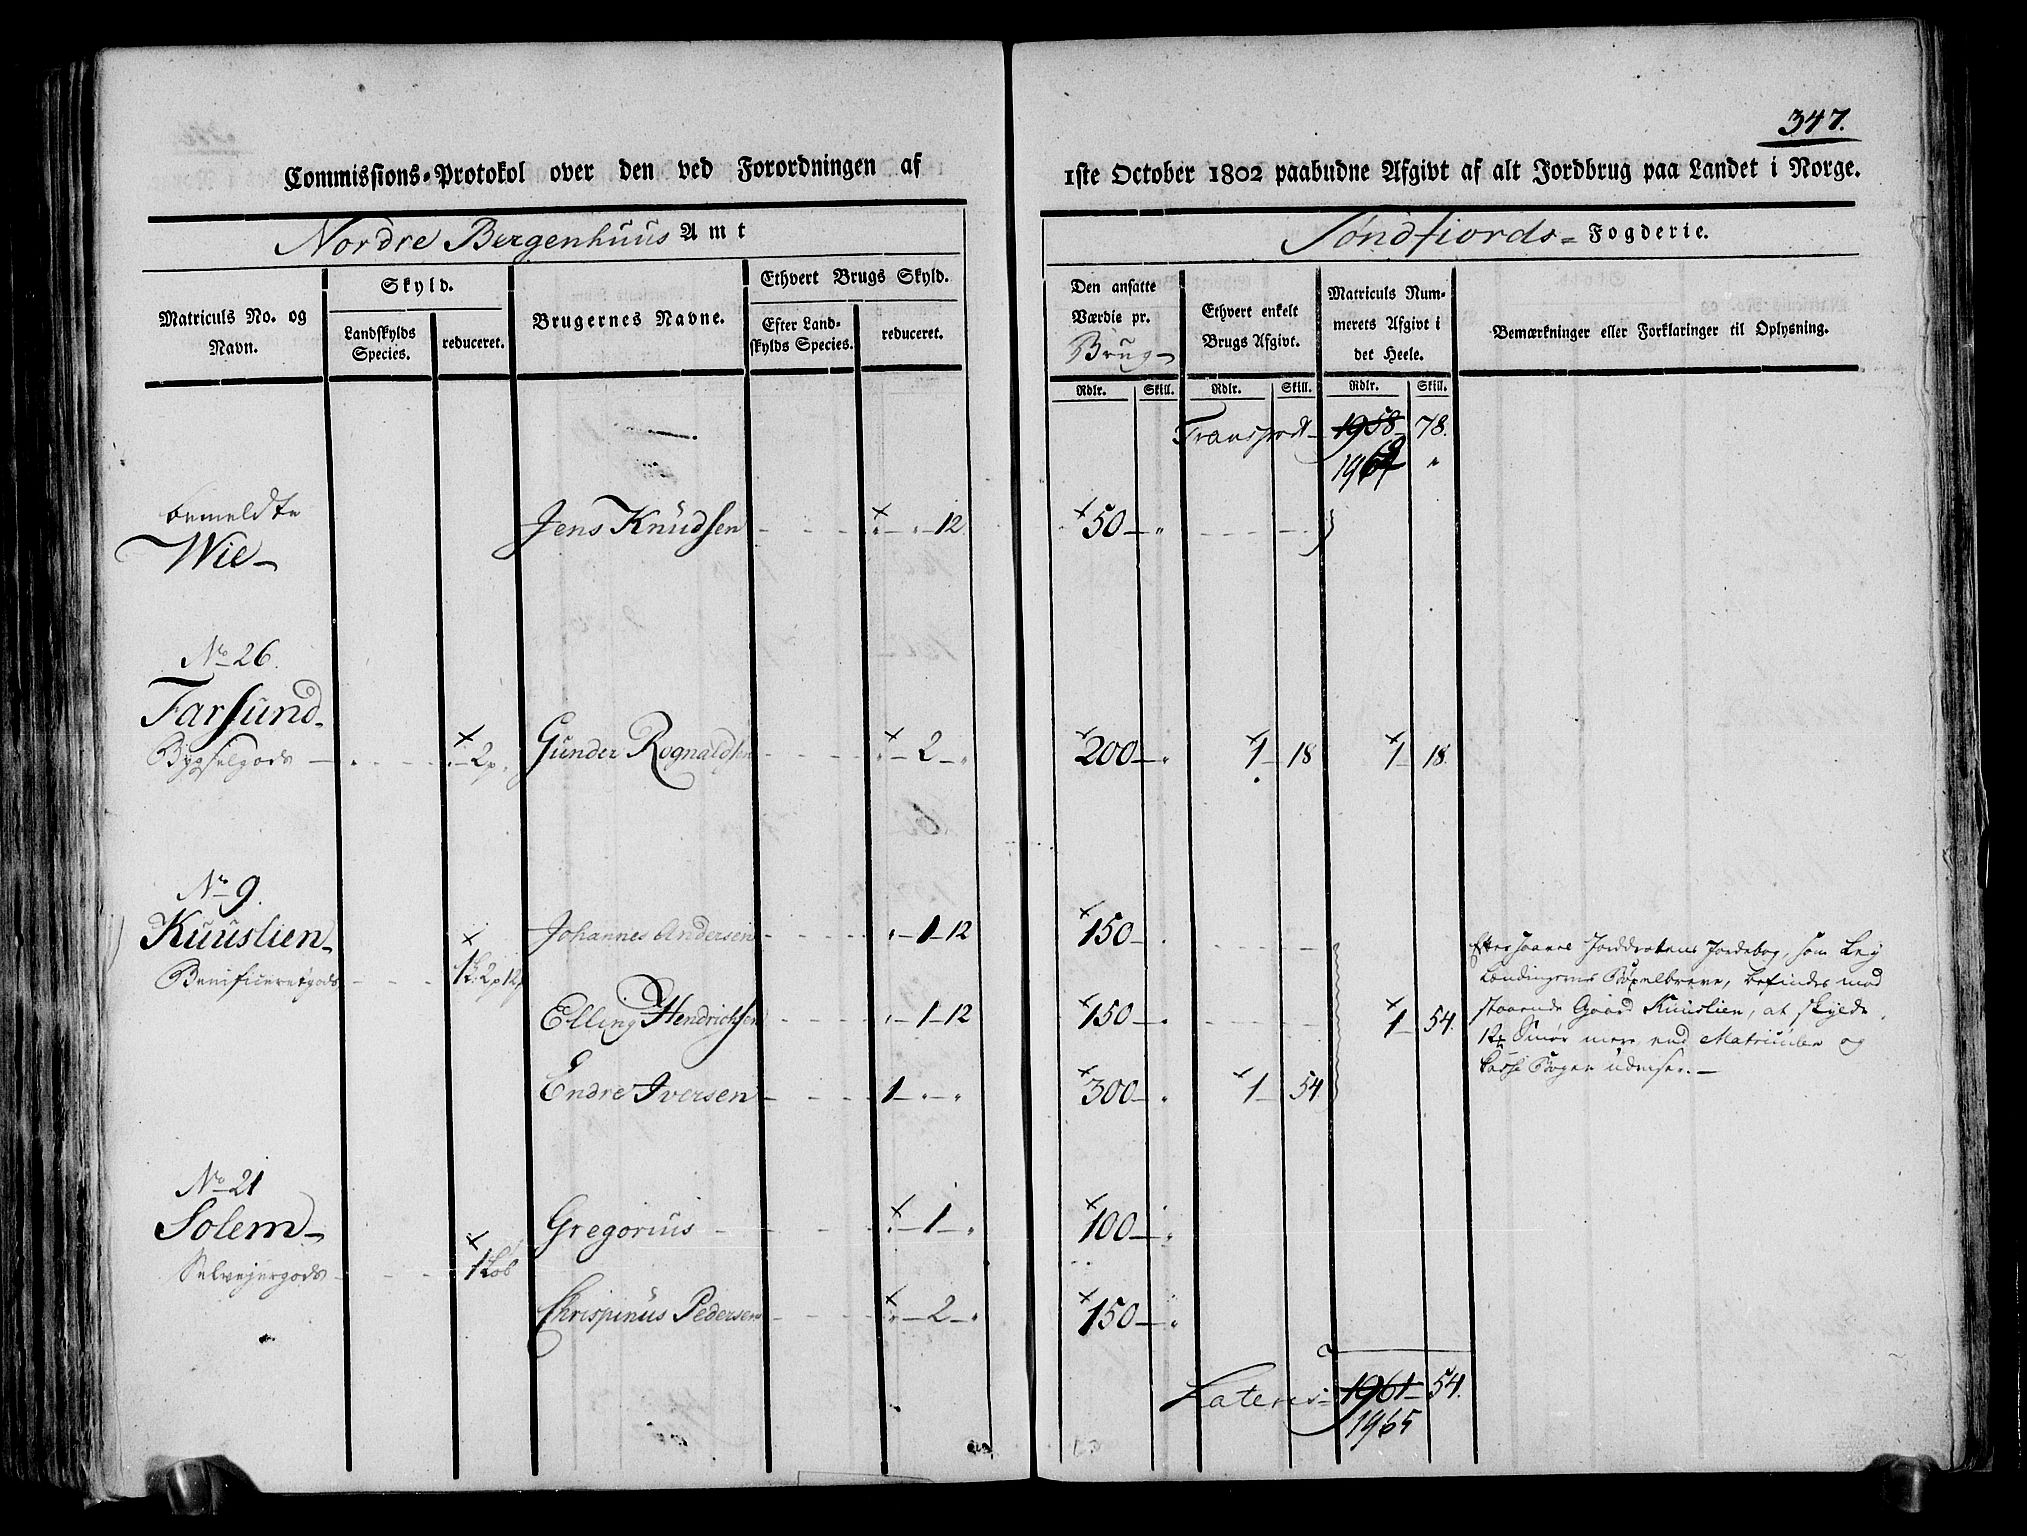 347.
Commissions-Protokol over den ved Forordningen af 1ste October 1802 paabudne Afgivt af alt Jordbrug paa Landet i Norge.
Nordre Bergenhuus Amt
Søndfiords- Fogderie.
Matriculs No. og Navn.
Skyld.
Landskylds Species.
reduceret.
Brugernes Navne.
Ethvert Brugs Skyld.
Efter Landskylds Species.
reduceret.
Den ansatte Værdie pr. Brug
Ethvert enkelt Brugs Afgivt.
Matriculs Nummerets Afgivt i det Heele.
Bemærkninger eller Forklaringer til Oplysning.
Rdlr. Skill. Rdlr. Skill. Rdlr. Skill.
Transport 1958 78.
196
bemeldte
Wie Jens Knudsen 12 50
No 26.
Farsund
Bygselgods 2p Gunder Rognaldsen 2 200 1 18 1 18.
No 9.
Kuuslien Johannes Andersen 1 12 150
Benificeretgods 1L 2p 12
Elling Hendrichsen 1 12 150 1 54.
Endre Iversen 1 300 1 54
Efter Jorddrottens Jordebog, som
Lændingernes Bøxelbreve, befindes
staaende Gaard Kuuslien, at skylde
Smør mere end Matriculen og
Bøger udviser.
No 21
Solem Gregorius 1 100
Selvejergods 1 Løb
Chrispinus Pedersen 2 150
Lateris 1961 54.
1965